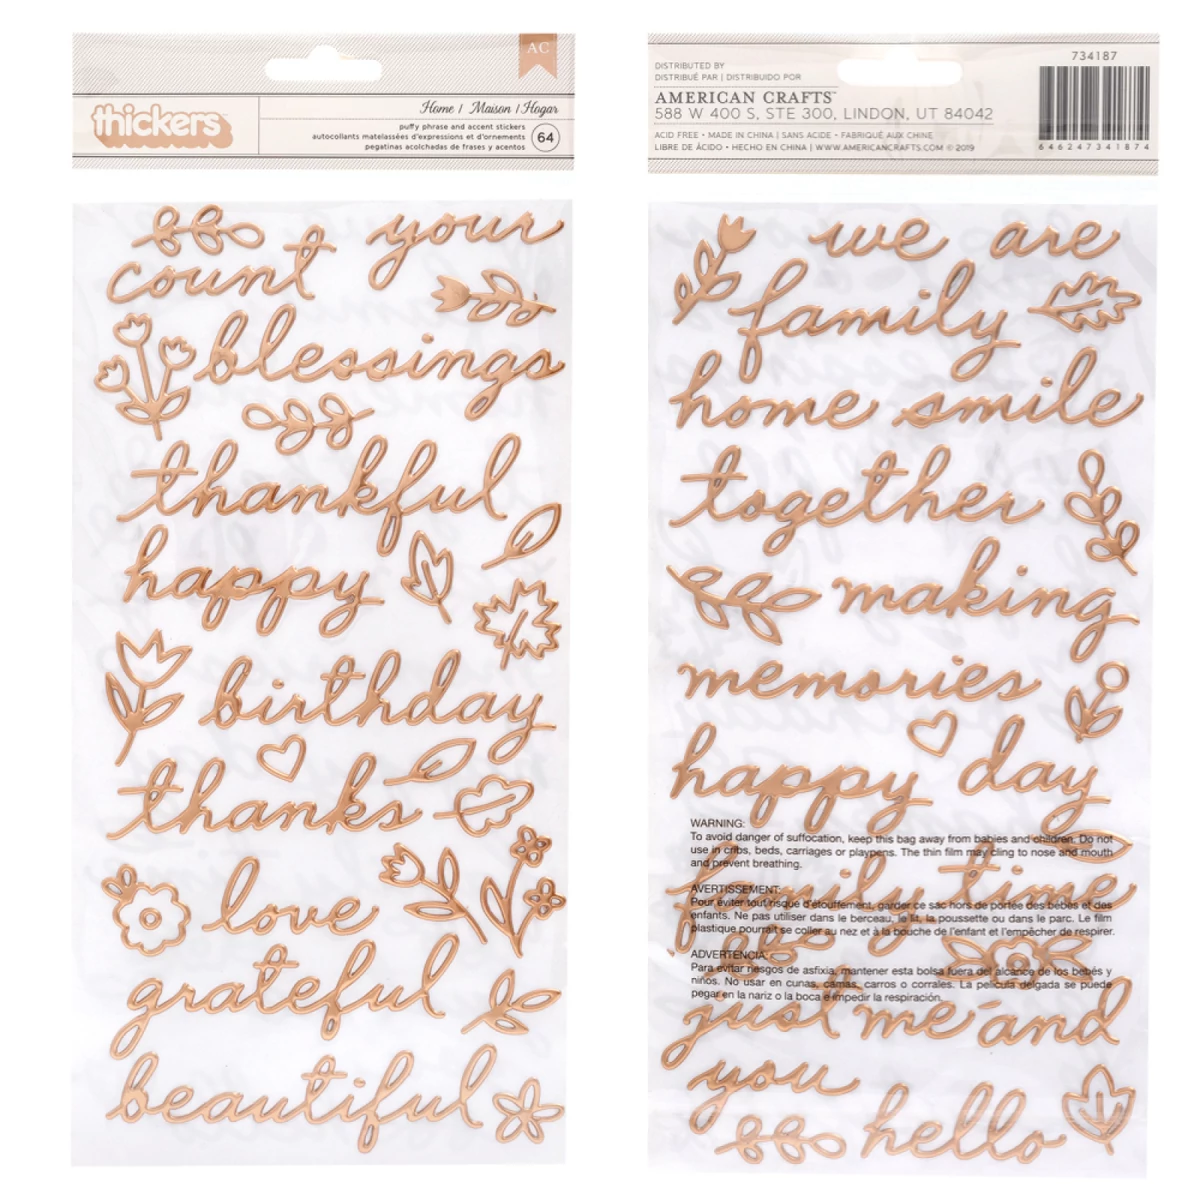 AC
thickers
Home | Maison | Hogar
puffy phrase and accent stickers
autocollants matelassées d'expressions et d'ornements
pegatinas acolchadas de frases y acentos
64
your
count
blessings
thankful
happy
birthday
thanks
love
grateful
beautiful
DISTRIBUTED BY
DISTRIBUÉ PAR | DISTRIBUIDO POR
AMERICAN CRAFTS™
588 W 400 S, STE 300, LINDON, UT 84042
ACID FREE • MADE IN CHINA | SANS ACIDE • FABRIQUÉ AUX CHINE
LIBRE DE ÁCIDO • HECHO EN CHINA | WWW.AMERICANCRAFTS.COM © 2019
734187
6 46247 34187 4
we are
family
home smile
together
making
memories
happy day
WARNING:
To avoid danger of suffocation, keep this bag away from babies and children. Do not
use in cribs, beds, carriages or playpens. The thin film may cling to nose and mouth
and prevent breathing.
family time
AVERTISSEMENT:
Pour éviter tout risque d'étouffement, garder ce sac hors de portée des bébés et des
enfants. Ne pas utiliser dans le berceau, le lit, la poussette ou dans le parc. Le film
plastique pourrait se coller au nez et à la bouche de l'enfant et l'empêcher de respirer.
ADVERTENCIA:
Para evitar riesgos de asfixia, mantener esta bolsa fuera del alcance de los bebés y
niños. No usar en cunas, camas, carros o corrales. La película delgada se puede
pegar en la nariz o la boca e impedir la respiración.
just me and
you
hello